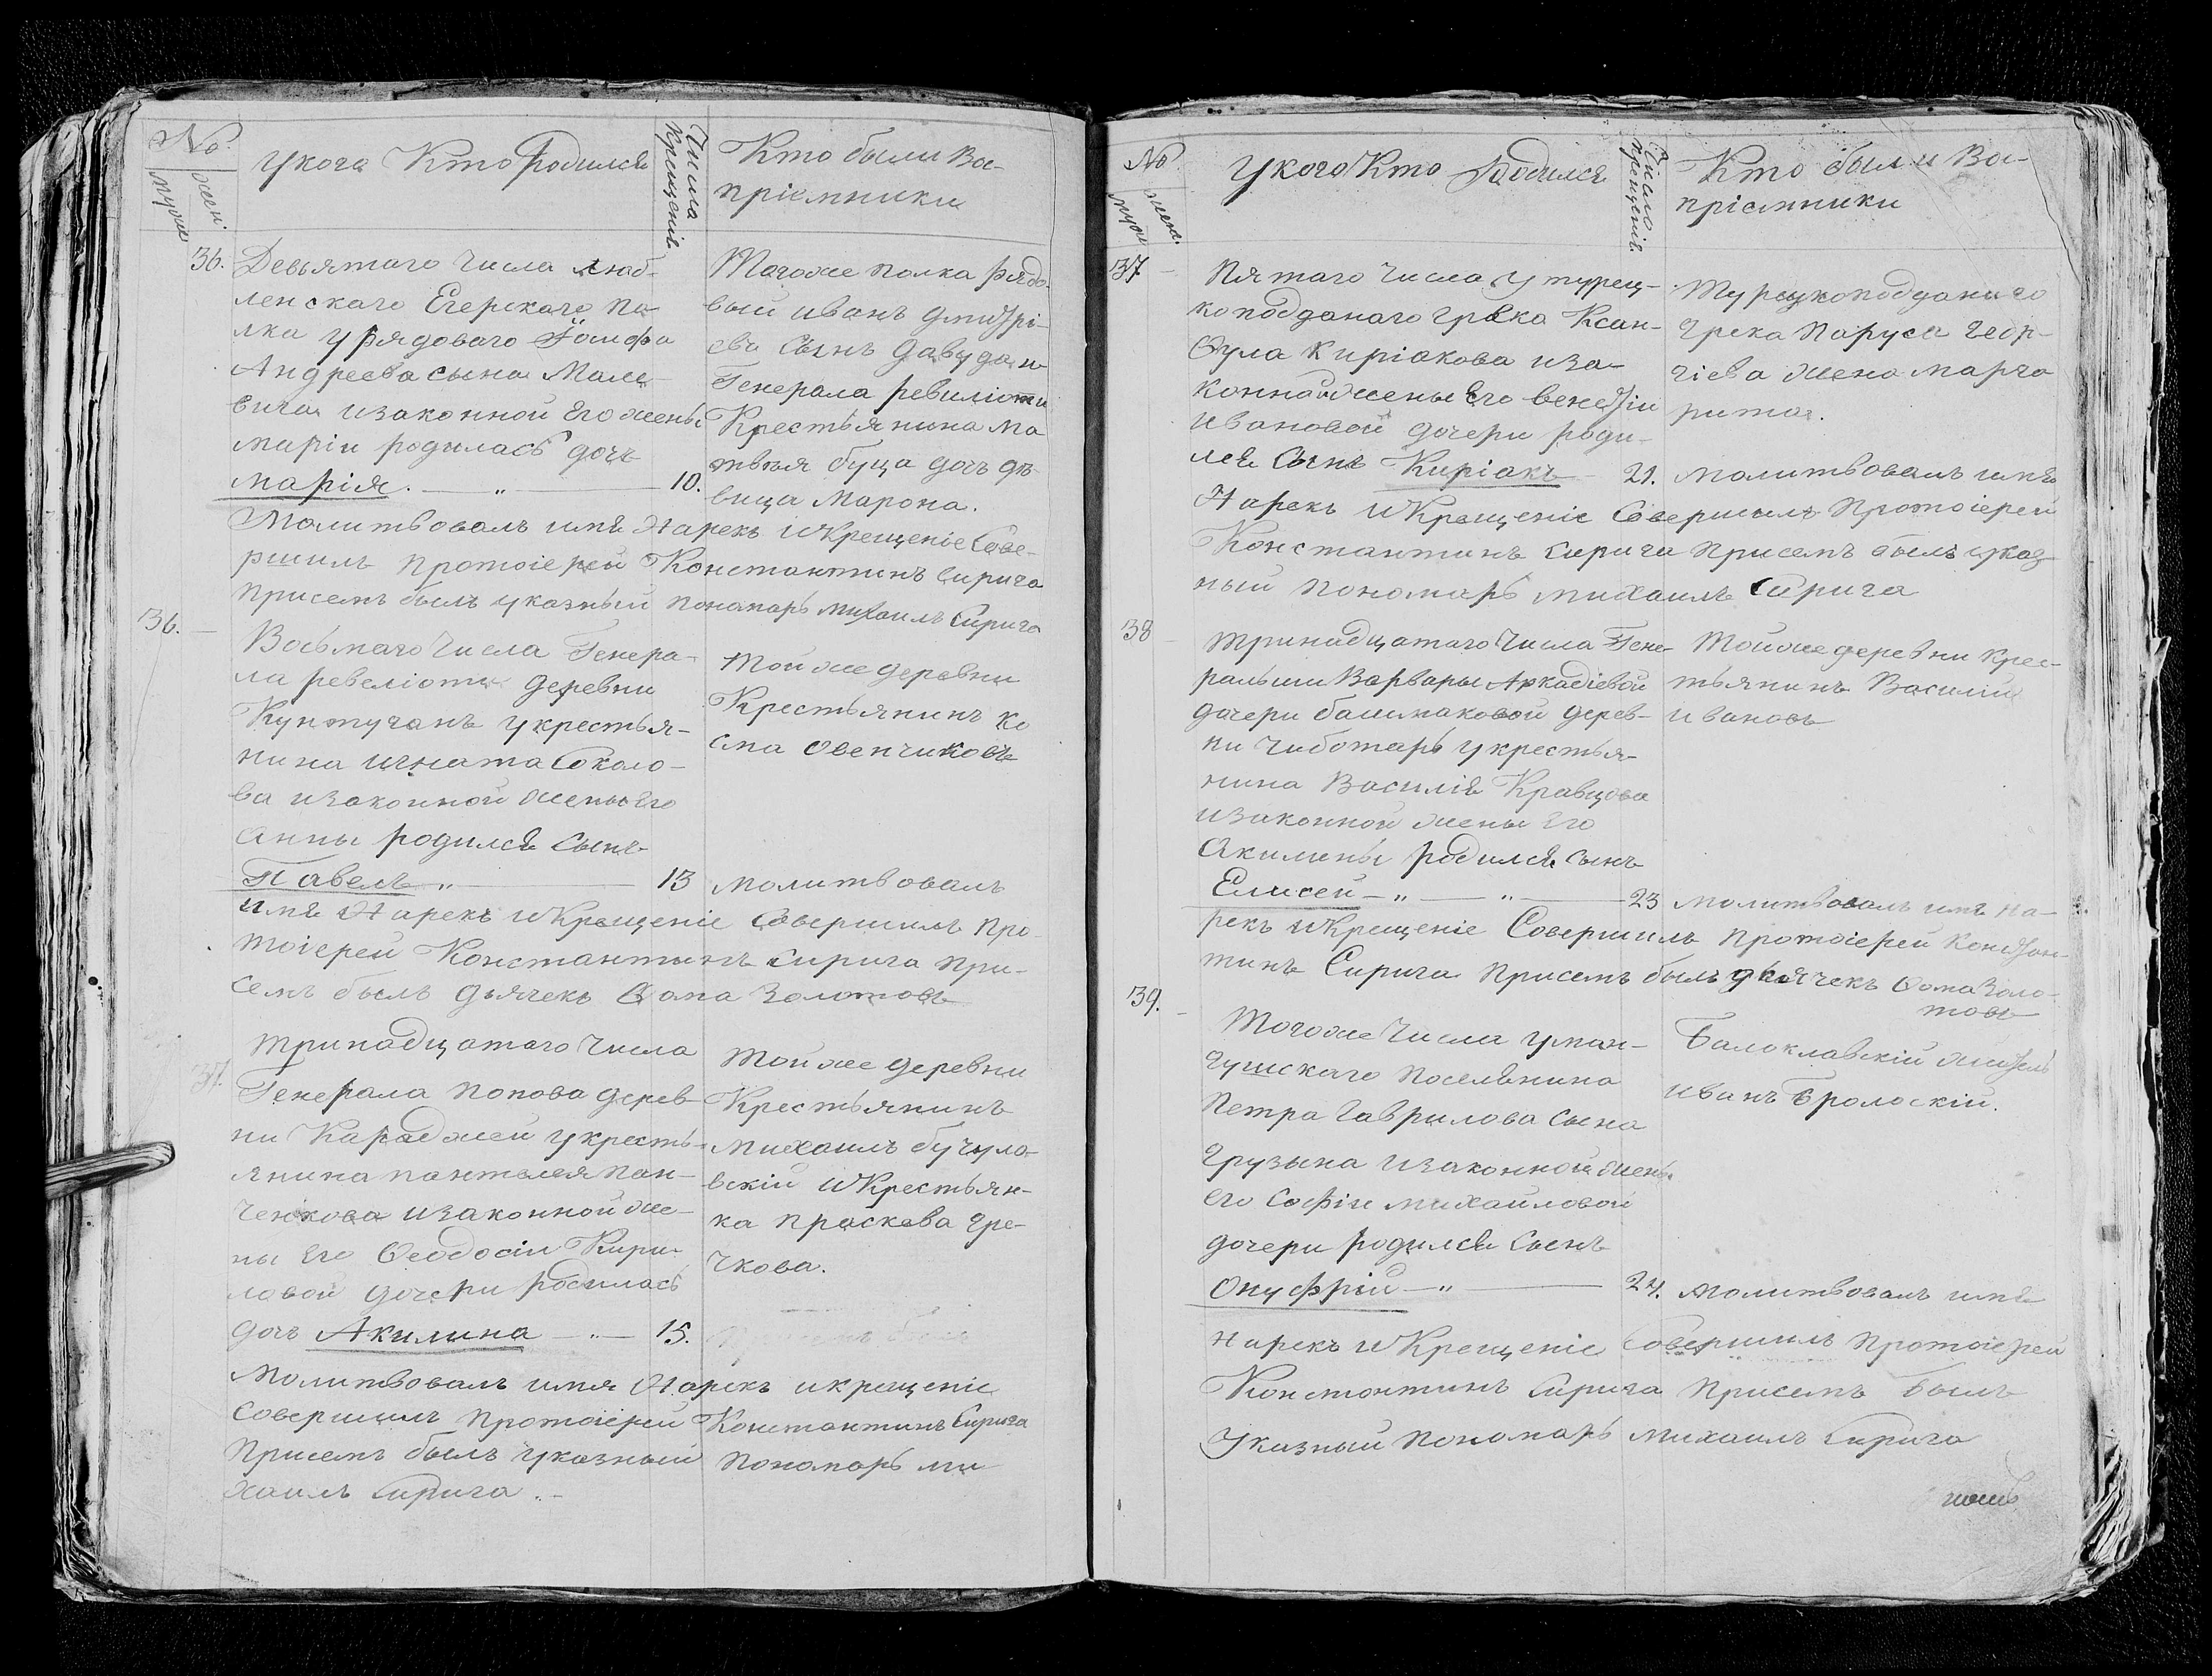 No.
муже
жен.
У кого Кто родился
Числа
Крещенія
Кто были Во-
пріемники
36.
Девьятаго Числа Люб-
ленскаго Егерскаго По-
лка у рядоваго
Андреева сына Мале-
вича изаконной Его жены
маріи родилась дочъ
марія. — „ — 10.
Тогоже полка рядо-
вый иванъ дмитрі-
евъ Сынъ и
Генерала ревиліоти
Крестьянина Ма
твѣя буца дочъ дѣ-
вица Марона.
Молитвовалъ имя Нарекъ и Крещеніе Сове-
ршилъ протоіерей Константинъ Спирига
присемъ былъ указный пономарь михаилъ Спирига
36.
Восьмаго Числа Генера-
ла ревеліоти деревни
Кунтуганъ у крестья-
нина игната Соколо-
ва изаконной жены Его
Анны родился Сынъ
Павелъ „ — 13
Той же деревни
Крестьянинъ Ко
сма Овенчиковъ
молитвовалъ
имя Нарекъ и Крещеніе Совершилъ Про-
тоіерей Константинъ Спирига при-
семъ былъ дьячекъ Ѳома Золотовъ
37.
тринадцатаго Числа
Генерала Попова дерев-
ни Караджеи у кресть-
янина пантелея Пан-
ченкова изаконной же-
ны Его Ѳеодосіи Кири-
ловой дочери родилась
дочъ Акилина — „ — 15.
Той же деревни
Крестьянинъ
Михаилъ бучула-
вскій и Крестьян-
ка праскева Гре-
чкова.
Молитвовалъ имя Нарекъ и крещеніе
Совершилъ Протоіерей Константинъ Спирига
Присемъ былъ указный Пономарь ми
хаилъ Спирига . –
No
муже
жена.
У кого Кто Родился
Число
крещенія.
Кто были Во-
пріемники
37
Пятаго Числа у турец-
коподданаго грека Ксан-
Ѳула Киріакова иза-
конной жены Его венетіи
Ивановой дочери роди-
лся Сынъ Киріакъ — 21.
Турецкоподданаго
Грека Паруса Геор-
гіева жена марга
рита.
молитвовалъ имя
Нарекъ и Крещеніе Совершилъ Протоіерей
Константинъ Спирига Присемъ былъ указ
ный пономарь михаилъ Спирига
38
Тринадцатаго Числа Гене-
ральши Варвары Аркадіевой
дочери башмаковой дерев-
ни Чиботарь у крестья-
нина Василія Кравцова
изаконной жены Его
Акилины родился сынъ
Елисей — „ — „ — 23
Той же деревни Крес-
тьянинъ Василій
ивановъ
молитвовалъ имя на-
рекъ и Крещеніе Совершилъ протоіерей Констан-
тинъ Спирига присемъ былъ дьячекъ Ѳома Золо-
товъ
39.
Тогоже Числа у ман-
гушскаго поселянина
Петра Гаврилова Сына
Грузына изаконной жены
его Софіи михаиловой
дочери родился Сынъ
Онуфрій — „ — 24.
Балоклавскій житель
иванъ Бролоскій.
молитвовалъ имя
нарекъ и Крещеніе Совершилъ протоіерей
Константинъ Спирига присемъ былъ
Указный Пономарь михаилъ Спирига